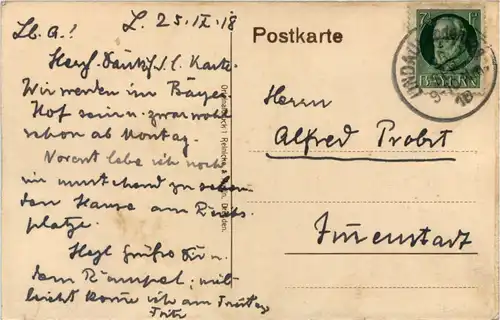 L. 25.IX.18
Lb. A.!
Herzl. Dank f. l. Karte.
Wir werden im Bayer.
Hof sein u. zwar wohl
schon ab Montag.
Vorerst lebe ich noch
den Hause am Reichs-
platze.
Herzl. Grüße Dir u.
dem Rampel; viel-
leicht komme ich am Freitag
Fritz
Postkarte
Herrn
Alfred Probst
Immenstadt
7½ P
BAYERN
LINDAU